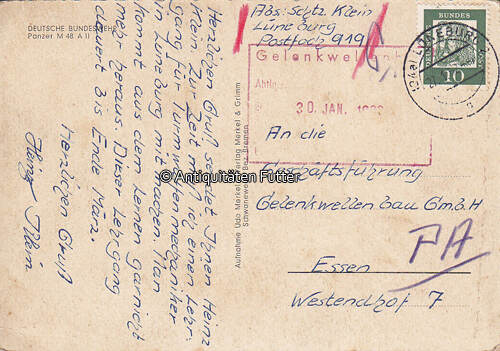 DEUTSCHE BUNDESWEHR
Panzer M 48 A II
Herzlichen Gruß sendet Ihnen Heinz
Klein. Zur Zeit muß ich einen Lehr-
gang für Turmwaffenmechaniker
in Lüneburg mit machen. Man
kommt aus dem Lernen garnicht
mehr heraus. Dieser Lehrgang
dauert bis Ende März.
Herzlichen Gruß
Heinz Klein
Aufnahme Udo Merkel Verlag Merkel & Grimm
Schwanewede Bremen
Abs: Schtz. Klein
Lüneburg
Postfach 919
Gelenkwellen
30. JAN.
An die
Geschäftsführung
Gelenkwellenbau G.m.b.H
Essen
Westendhof 7
PA
DEUTSCHE BUNDESPOST
10
(24a) LÜNEBURG 2
© Antiquitäten Fütter